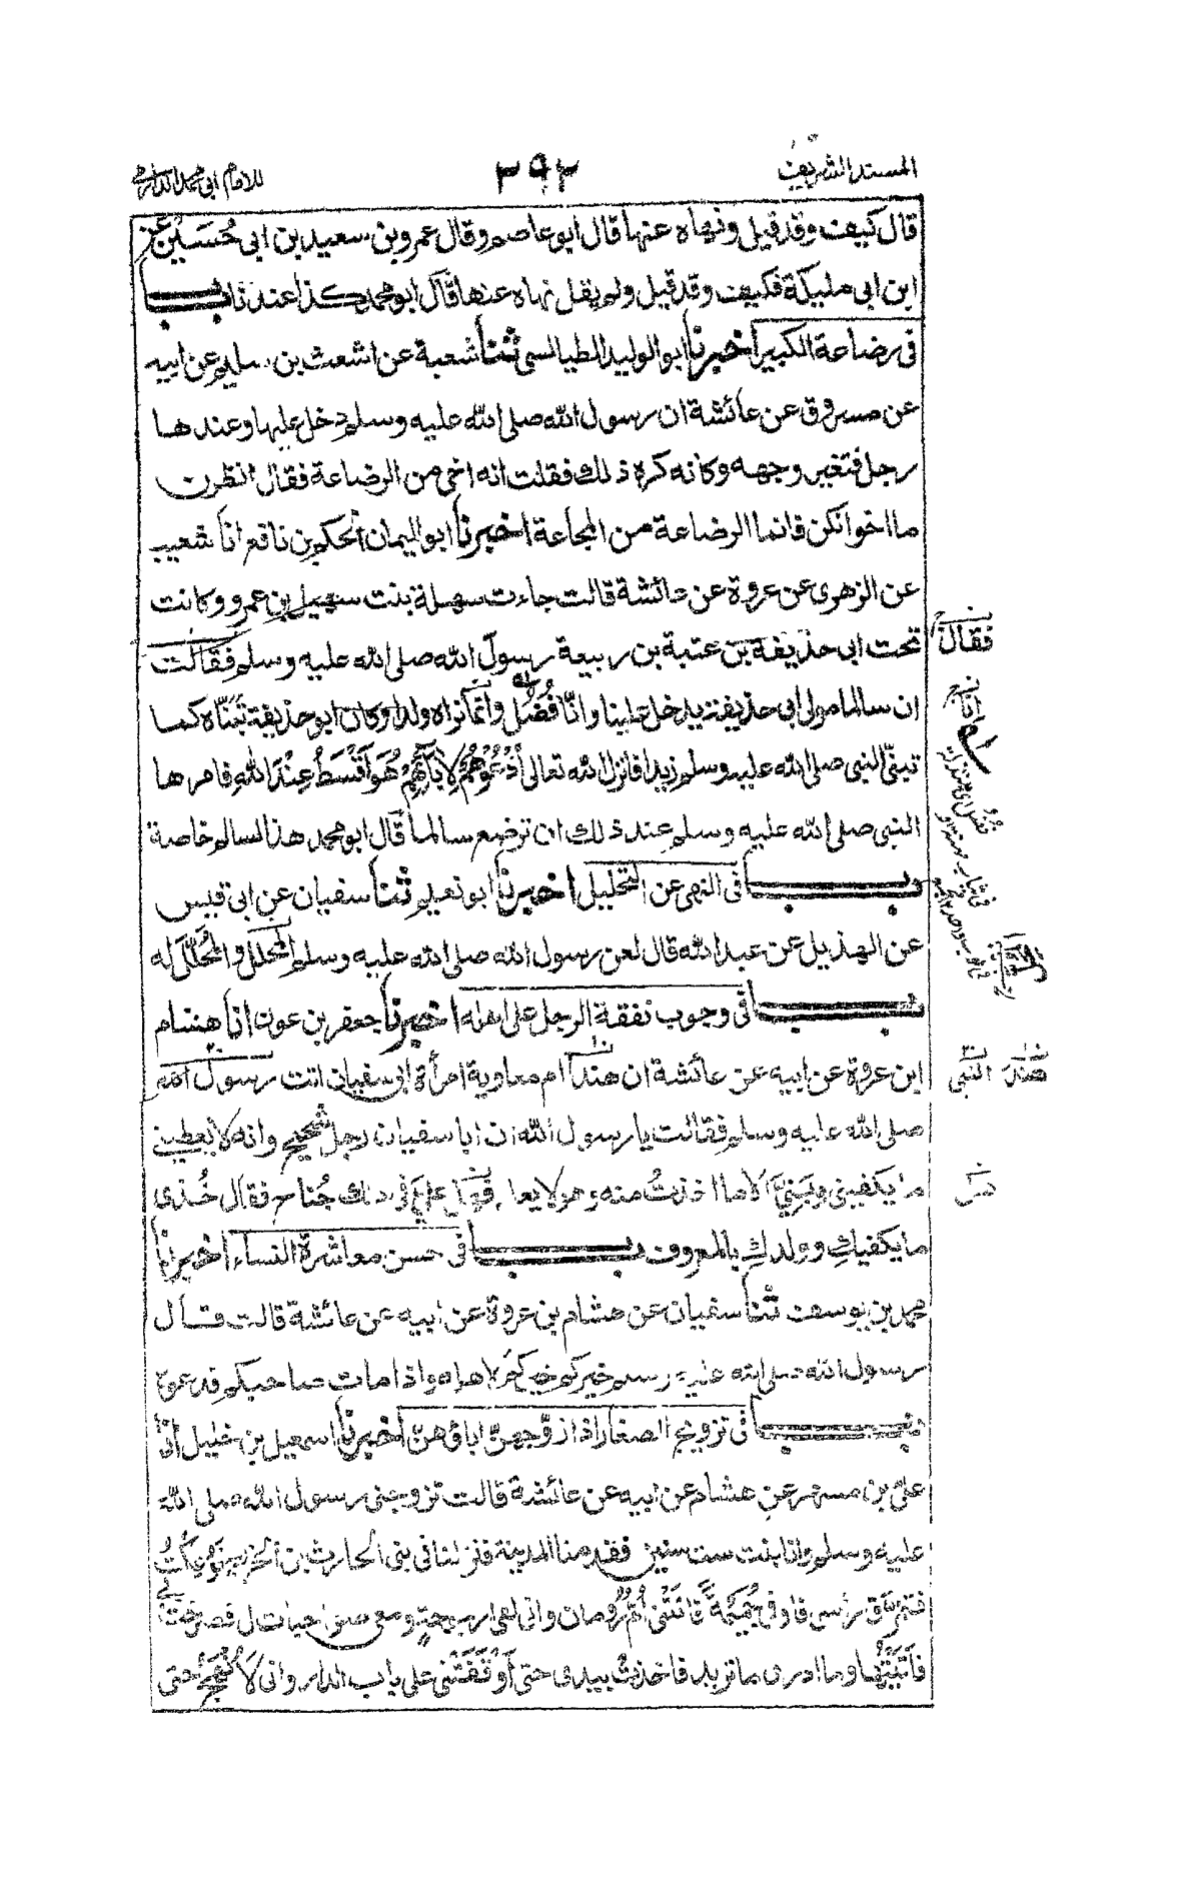 المسند الشريف
٢٩٢
للامام ابي محمد الدارمي
قال كيف وقد قيل ونهاه عنها قال ابو عاصم وقال عمرو بن سعيد بن ابي حُسَيْن عن
ابن ابي مليكة فكيف وقد قيل ولم يقل نهاه عنها قال ابو محمد كذا عندنا باب
في رضاعة الكبير اخبرنا ابو الوليد الطيالسى ثنا شعبة عن اشعث بن سليم عن ابيه
عن مسروق عن عائشة ان رسول الله صلى الله عليه وسلم دخل عليها وعندها
رجل فتغير وجهه وكانه كره ذلك فقلت انه اخى من الرضاعة فقال انظرن
ما اخوانكن فانما الرضاعة من المجاعة اخبرنا ابو اليمان الحكم بن نافع انا شعيب
عن الزهرى عن عروة عن عائشة قالت جاءت سهلة بنت سهيل بن عمرو وكانت
تحت ابى حذيفة بن عتبة بن ربيعة رسول الله صلى الله عليه وسلم فقالت
فقال
ان سالما مولى ابى حذيفة يدخل علينا وانا فُضُل وانما نراه ولدا وكان ابو حذيفة تبناه كما
تبنى النبى صلى الله عليه وسلم زيدا فانزل الله تعالى اُدْعُوْهُمْ لِاٰبَآئِهِمْ هُوَ اَقْسَطُ عِنْدَ اللهِ فامرها
النبى صلى الله عليه وسلم عند ذلك ان ترضع سالما قال ابو محمد هذا لسالم خاصة
باب فى النهى عن التحليل اخبرنا ابو نعيم ثنا سفيان عن ابى قيس
عن الهذيل عن عبد الله قال لعن رسول الله صلى الله عليه وسلم المحلل والمُحَلَّلَ له
باب فى وجوب نفقة الرجل على اهله اخبرنا جعفر بن عون انا هشام
ابن عروة عن ابيه عن عائشة ان هندا ام معاوية امرأة ابى سفيان اتت رسول الله
النبى
صلى الله عليه وسلم فقالت يا رسول الله ان ابا سفيان رجل شحيح وانه لا يعطينى
ما يكفينى وبَنِيَّ الا ما اخذتُ منه وهو لا يعلم فهل علىّ فى ذلك جُناح فقال خُذى
ما يكفيكِ وولدكِ بالمعروف باب فى حسن معاشرة النساء اخبرنا
محمد بن يوسف ثنا سفيان عن هشام بن عروة عن ابيه عن عائشة قالت قال
رسول الله صلى الله عليه وسلم خيركم خيركم لاهله واذا مات صاحبكم فدعوه
باب فى تزويج الصغار اذا زوّجهن اباؤهنّ اخبرنا اسمعيل بن خليل انا
علىّ بن مسهر عن هشام عن ابيه عن عائشة قالت تزوجنى رسول الله صلى الله
عليه وسلم وانا بنت ست سنين فقدمنا المدينة فنزلنا فى بنى الحارث بن الخزرج فوُعِكْتُ
فتمزق رأسى فاوفى جُمَيْمَةً فاتتنى اُمُّ رُومان وانى لفى ارجوحةٍ ومعى صواحبات لى فصرخت
فَاَتَيْتُهَا وما ادرى ما تريد فاخذتْ بيدى حتى اَوْقَفَتْنِى على باب الدار وانى لَاُنْهَجُ حتى